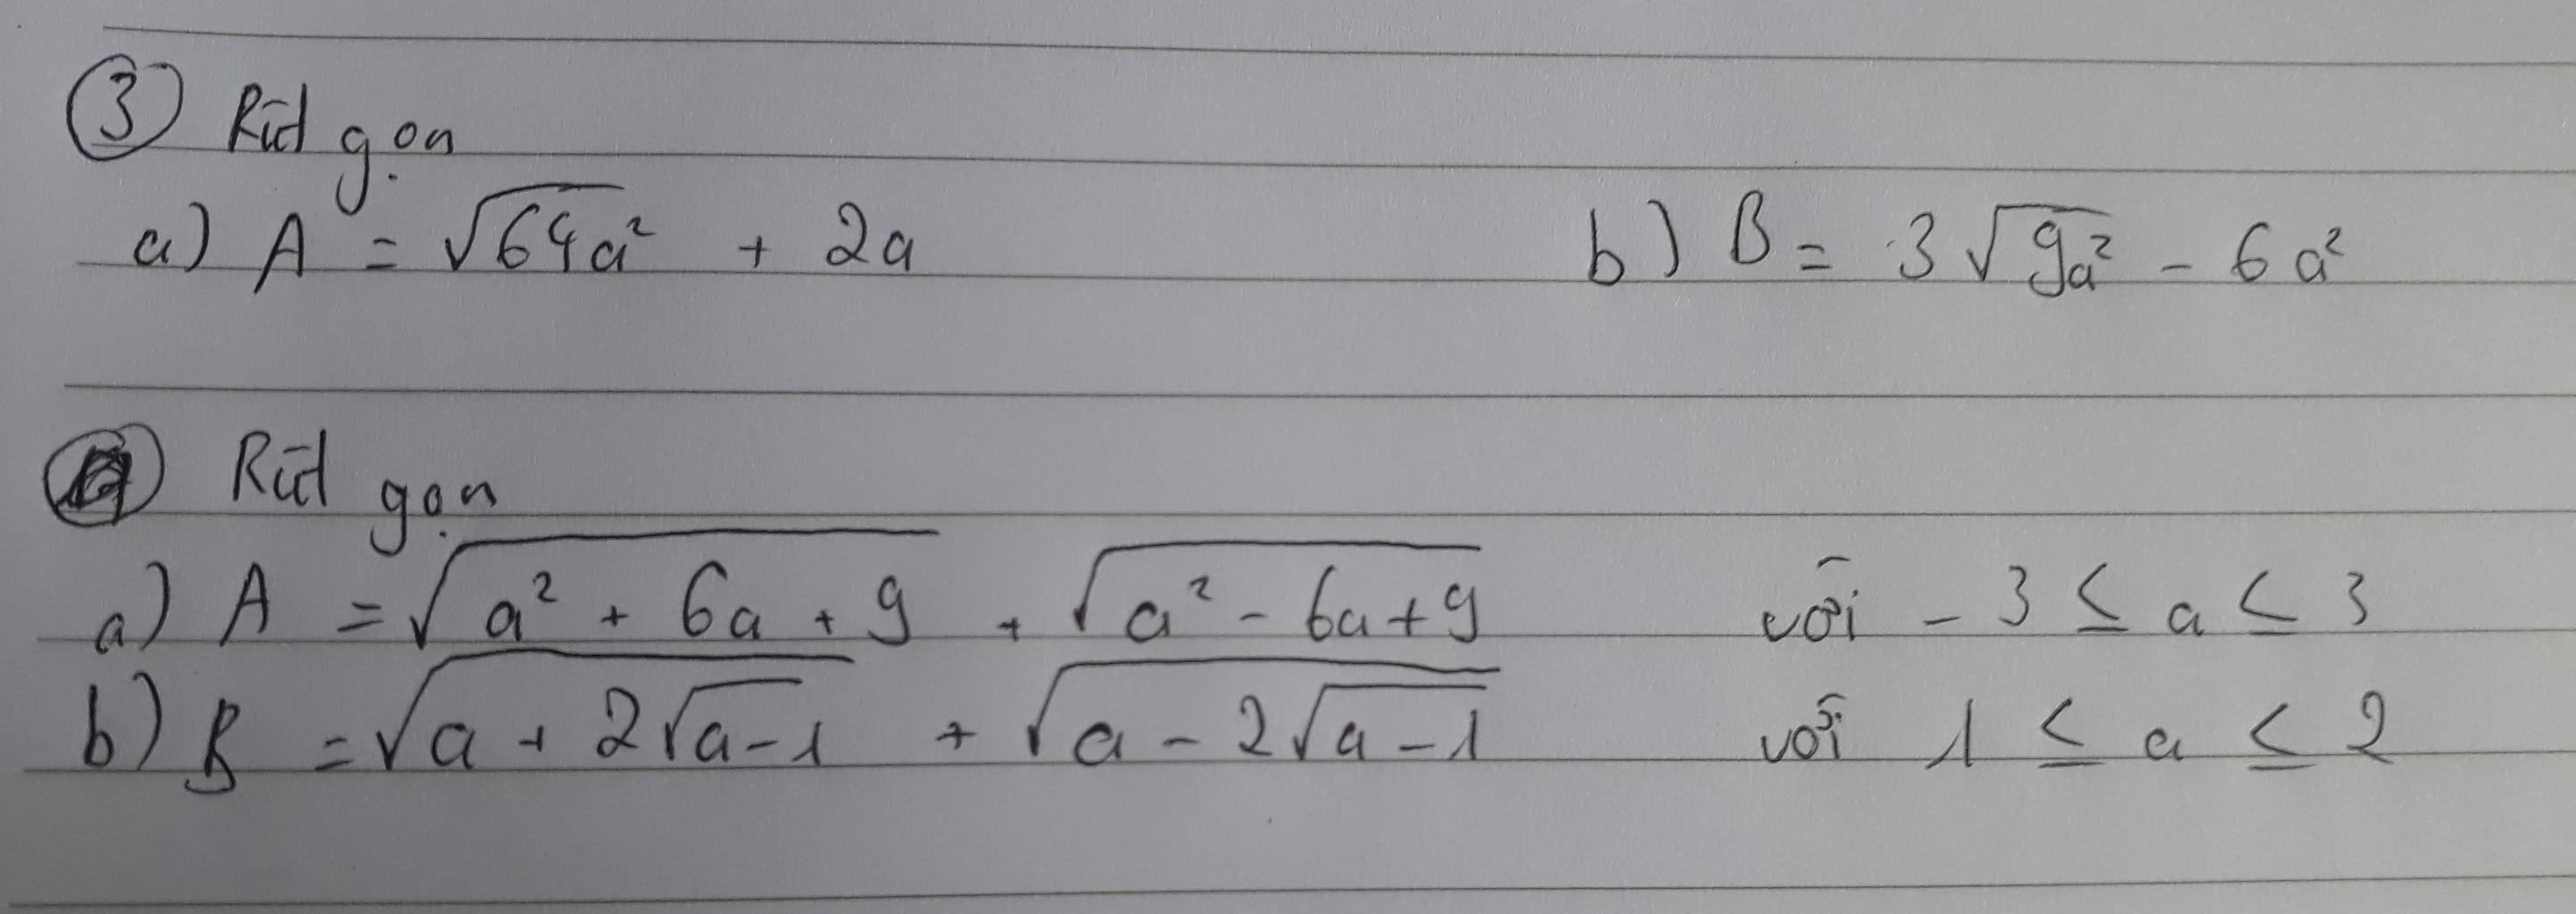 ③ Rút gọn
a) A = √64a² + 2a b) B = 3√9a² - 6a²
Rút gọn
a) A = √(a² + 6a + 9) + √(a² - 6a + 9) với - 3 ≤ a ≤ 3
b) B = √(a + 2√(a-1)) + √(a - 2√(a-1)) với 1 ≤ a ≤ 2